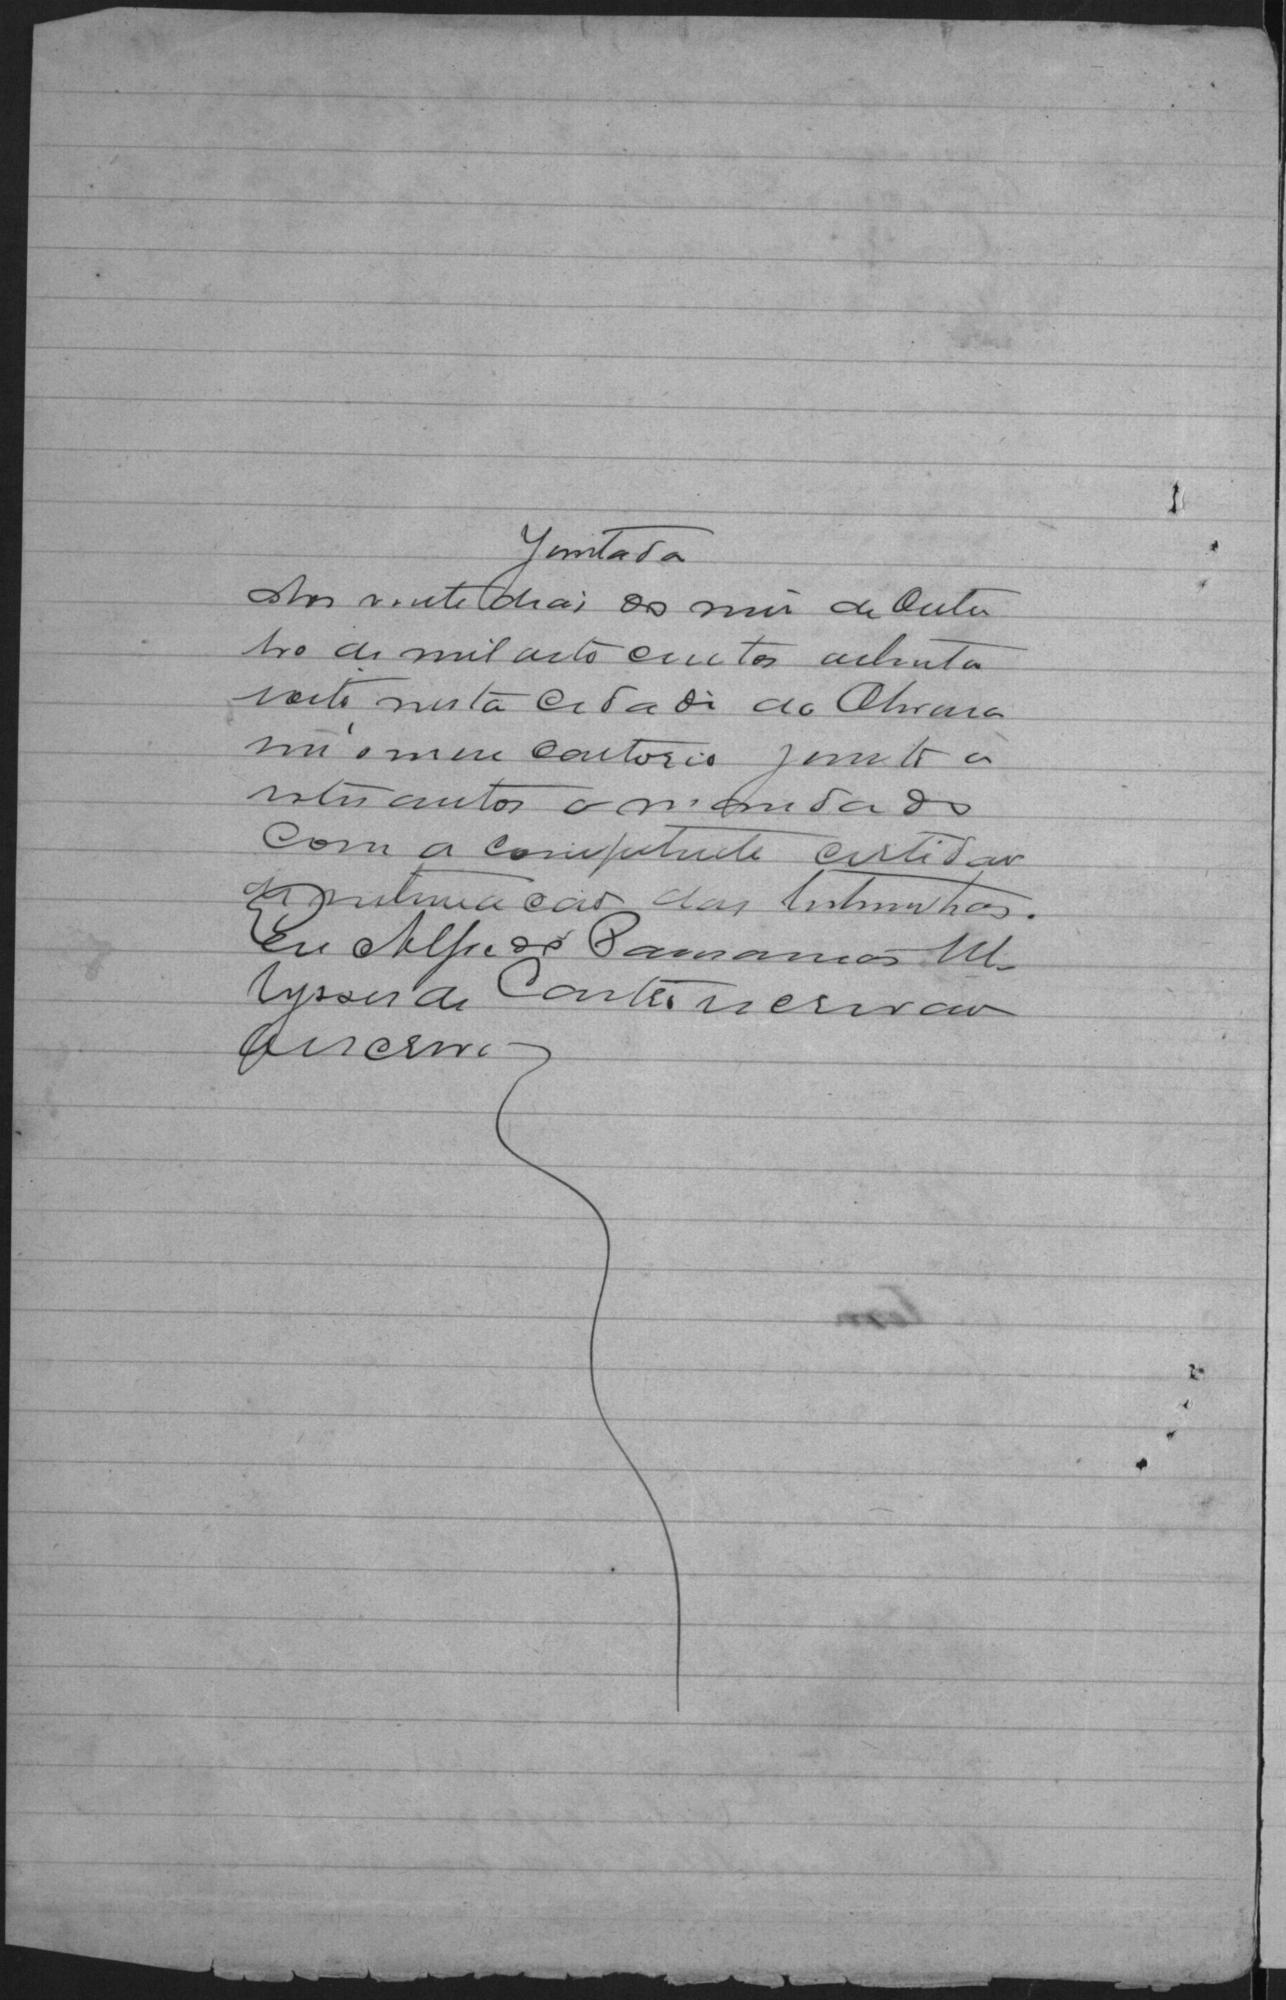 Juntada
Aos vinte dias do mez de Outu
bro de mil oito centos oitenta
e oito nesta cidade de Oliveira
em o meu cartorio junto a
estes autos o mandado
com a competente certidão
de intimação das testemunhas.
Eu Alfredo Paranaios Ul
ysses de Castro escrivão
que escrevi